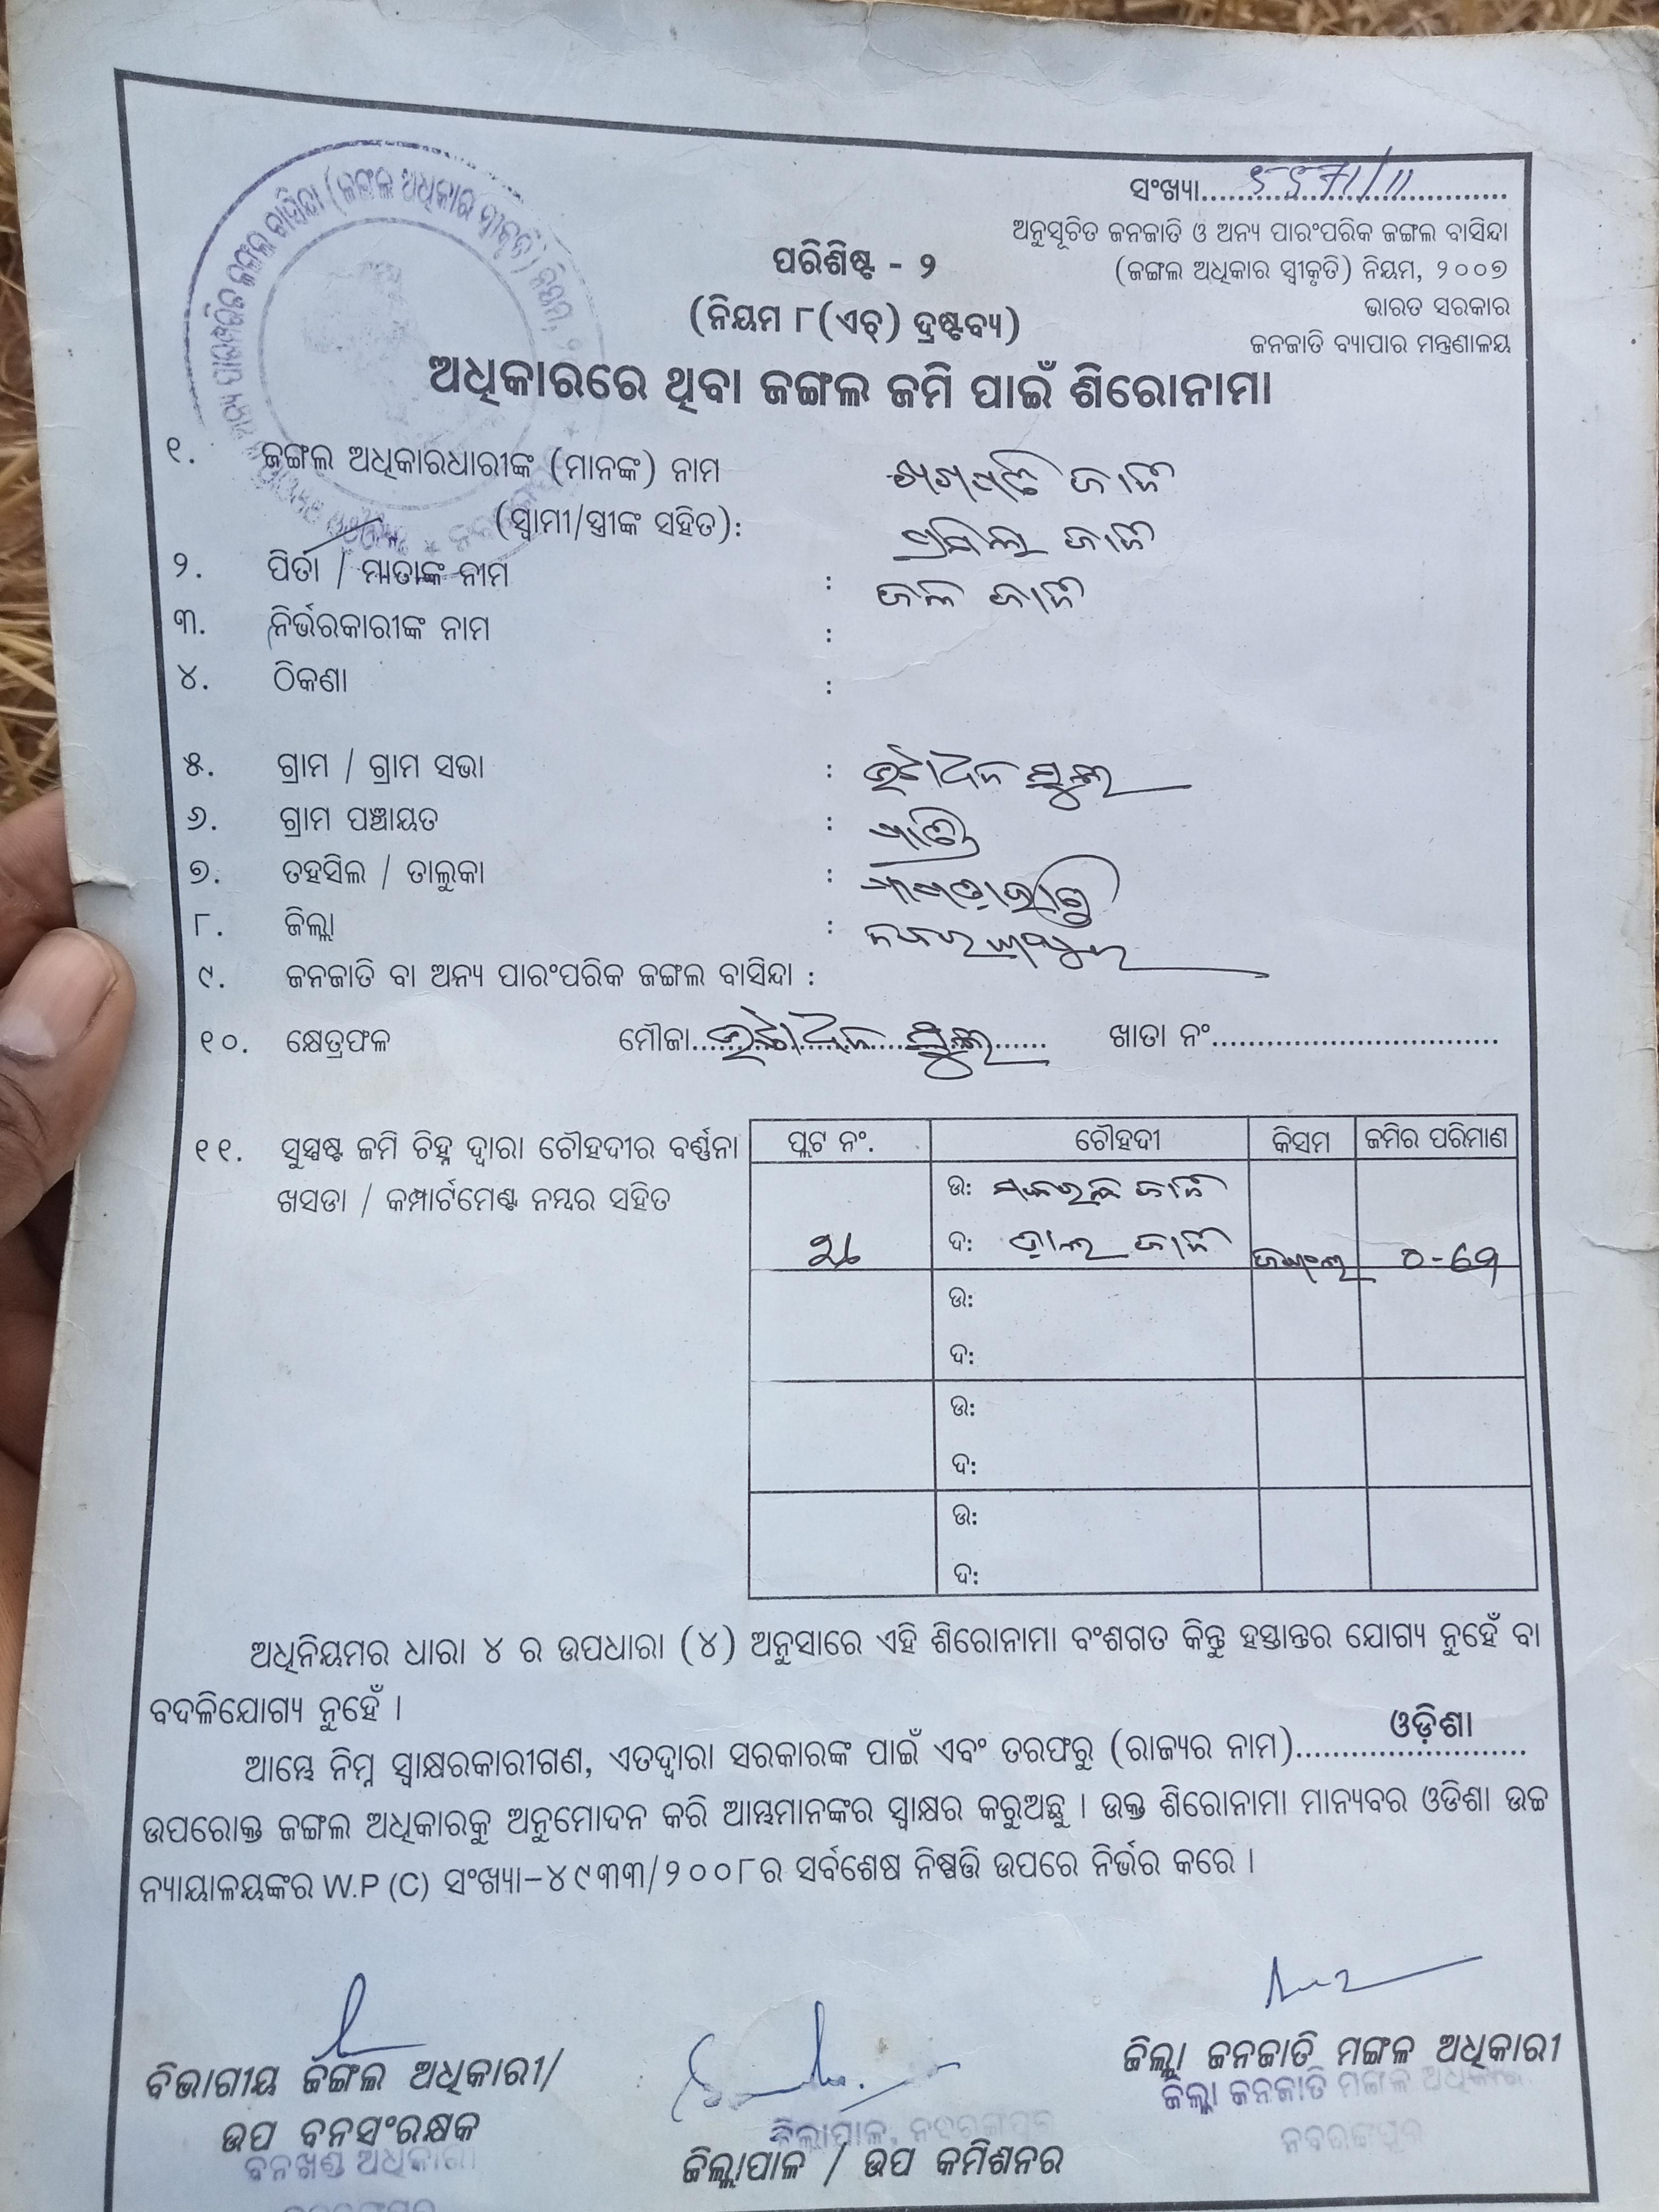 ସଂଖ୍ୟା....................................
ଅନୁସୂଚିତ ଜନଜାତି ଓ ଅନ୍ୟ ପାରଂପରିକ ଜଙ୍ଗଲ ବାସିନ୍ଦା
(ଜଙ୍ଗଲ ଅଧିକାର ସ୍ୱୀକୃତି) ନିୟମ, ୨୦୦୭
ଭାରତ ସରକାର
ଜନଜାତି ବ୍ୟାପାର ମନ୍ତ୍ରଣାଳୟ
ପରିଶିଷ୍ଟ - ୨
(ନିୟମ ୮(ଏଚ୍) ଦ୍ରଷ୍ଟବ୍ୟ)
ଅଧିକାରରେ ଥିବା ଜଙ୍ଗଲ ଜମି ପାଇଁ ଶିରୋନାମା
୧. ଜଙ୍ଗଲ ଅଧିକାରଧାରୀଙ୍କ (ମାନଙ୍କ) ନାମ ଜାନି
(ସ୍ୱାମୀ/ସ୍ତ୍ରୀଙ୍କ ସହିତ): ଜାନି
୨. ପିତା / ମାତାଙ୍କ ନାମ : ଜାନି
୩. ନିର୍ଭରକାରୀଙ୍କ ନାମ :
୪. ଠିକଣା :
୫. ଗ୍ରାମ / ଗ୍ରାମ ସଭା :
୬. ଗ୍ରାମ ପଞ୍ଚାୟତ :
୭. ତହସିଲ / ତାଲୁକା :
୮. ଜିଲ୍ଲା : ନବରଙ୍ଗପୁର
୯. ଜନଜାତି ବା ଅନ୍ୟ ପାରଂପରିକ ଜଙ୍ଗଲ ବାସିନ୍ଦା :
୧୦. କ୍ଷେତ୍ରଫଳ ମୌଜା.................................... ଖାତା ନଂ................................
୧୧. ସୁସ୍ପଷ୍ଟ ଜମି ଚିହ୍ନ ଦ୍ୱାରା ଚୌହଦୀର ବର୍ଣ୍ଣନା
ଖସଡା / କମ୍ପାର୍ଟମେଣ୍ଟ ନମ୍ବର ସହିତ
ପ୍ଲଟ ନଂ. ଚୌହଦୀ କିସମ ଜମିର ପରିମାଣ
ଉ: ଜାନି
ଦ: ଜାନି
ଉ:
ଦ:
ଉ:
ଦ:
ଉ:
ଦ:
ଅଧିନିୟମର ଧାରା ୪ ର ଉପଧାରା (୪) ଅନୁସାରେ ଏହି ଶିରୋନାମା ବଂଶଗତ କିନ୍ତୁ ହସ୍ତାନ୍ତର ଯୋଗ୍ୟ ନୁହେଁ ବା
ବଦଳିଯୋଗ୍ୟ ନୁହେଁ ।
ଆମ୍ଭେ ନିମ୍ନ ସ୍ୱାକ୍ଷରକାରୀଗଣ, ଏତଦ୍ଦ୍ୱାରା ସରକାରଙ୍କ ପାଇଁ ଏବଂ ତରଫରୁ (ରାଜ୍ୟର ନାମ)......ଓଡ଼ିଶା......
ଉପରୋକ୍ତ ଜଙ୍ଗଲ ଅଧିକାରକୁ ଅନୁମୋଦନ କରି ଆମ୍ଭମାନଙ୍କର ସ୍ୱାକ୍ଷର କରୁଅଛୁ । ଉକ୍ତ ଶିରୋନାମା ମାନ୍ୟବର ଓଡିଶା ଉଚ୍ଚ
ନ୍ୟାୟାଳୟଙ୍କର W.P (C) ସଂଖ୍ୟା-୪୯୩୩/୨୦୦୮ର ସର୍ବଶେଷ ନିଷ୍ପତ୍ତି ଉପରେ ନିର୍ଭର କରେ ।
ବିଭାଗୀୟ ଜଙ୍ଗଲ ଅଧିକାରୀ/
ଉପ ବନସଂରକ୍ଷକ
ବନଖଣ୍ଡ ଅଧିକାରୀ
ଜିଲ୍ଲାପାଳ, ନବରଙ୍ଗପୁର
ଜିଲ୍ଲାପାଳ / ଉପ କମିଶନର
ଜିଲ୍ଲା ଜନଜାତି ମଙ୍ଗଳ ଅଧିକାରୀ
ଜିଲ୍ଲା ଜନଜାତି ମଙ୍ଗଳ ଅଧିକାରୀ
ନବରଙ୍ଗପୁର